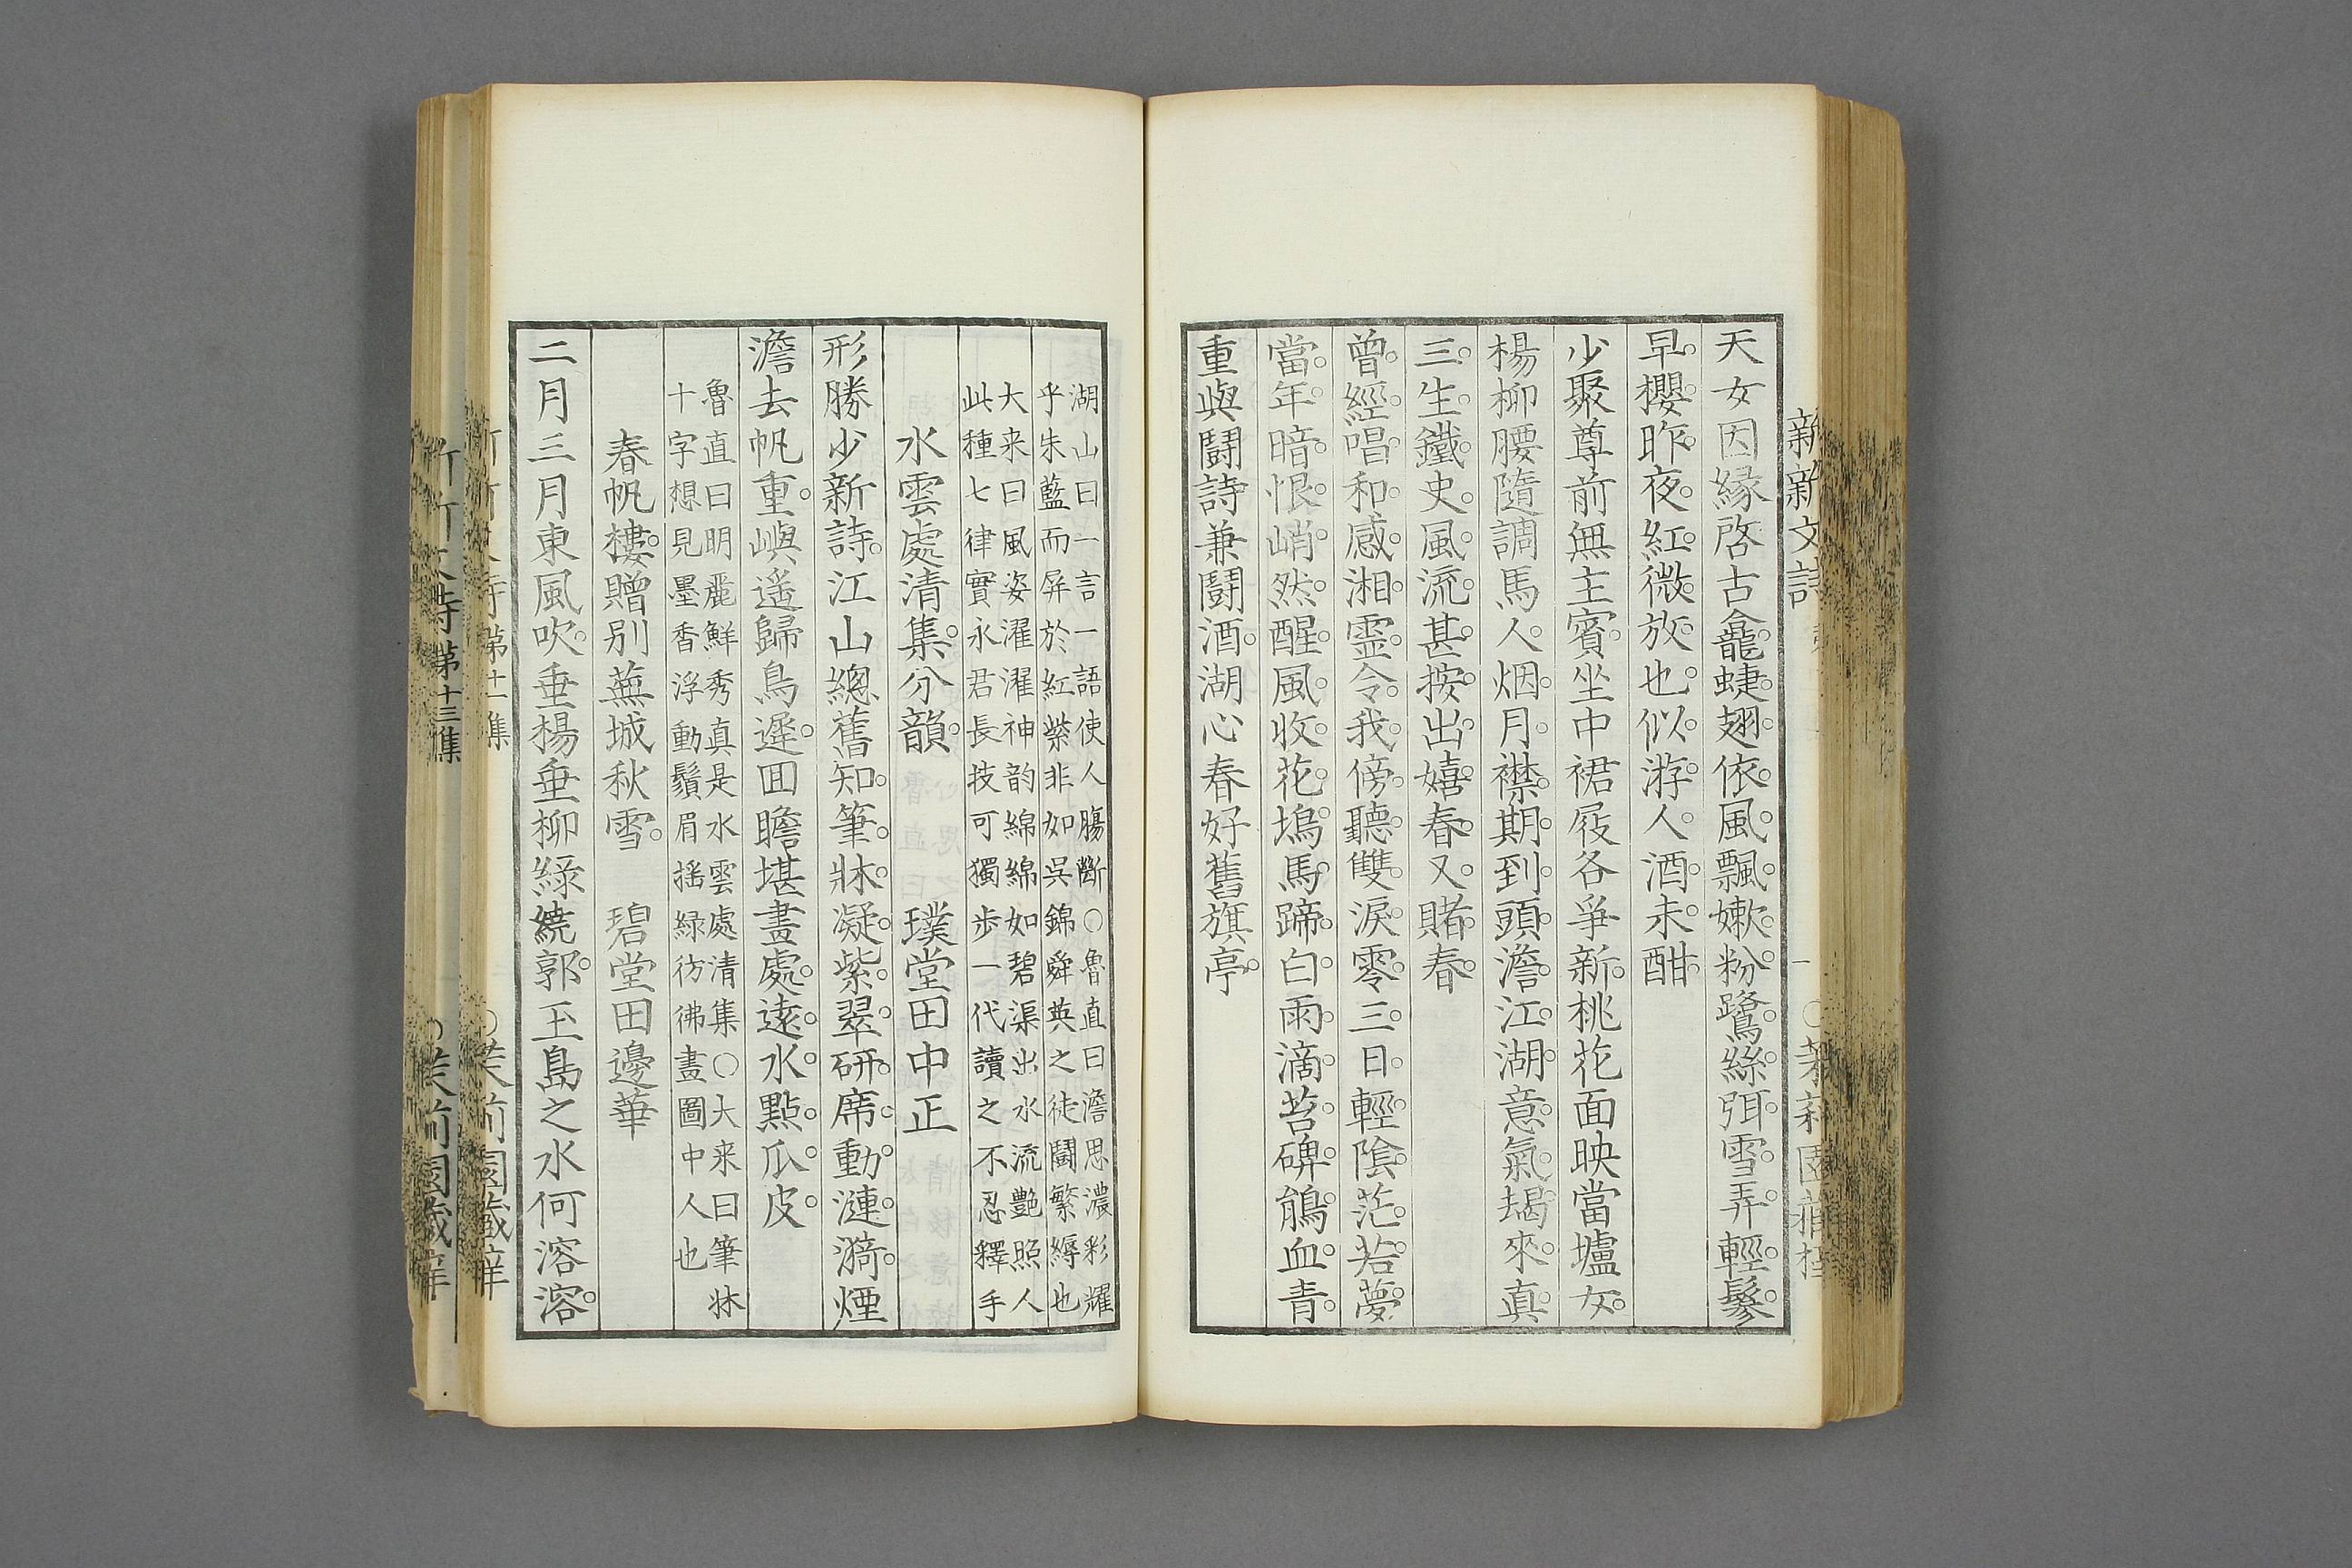 天女因緣啓古龕蜨翅依風飄嫩粉鷺絲弭雪弄輕鬖
早櫻昨夜紅微放也似游人酒未酣
少聚尊前無主賓坐中裙屐各爭新桃花面映當壚女
楊柳腰隨調馬人烟月襟期到頭澹江湖意氣朅來真
三生鐵史風流甚按出嬉春又賭春
曾經唱和感湘靈令我傍聽雙淚零三日輕陰茫若夢
當年暗恨峭然醒風收花塢馬蹄白雨滴苔碑鵑血青
重與鬪詩兼鬪酒湖心春好舊旗亭
湖山曰一言一語使人腸斷○魯直曰澹思濃彩耀
乎朱藍而屏於紅紫非如吳錦舜英之徒鬪繁縟也
大来曰風姿濯濯神韵綿綿如碧渠出水流艷照人
此種七律實永君長技可獨步一代讀之不忍釋手
水雲處清集分韻 璞堂田中正
形勝少新詩江山總舊知筆牀凝紫翠研席動漣漪煙
澹去帆重嶼遥歸鳥遲囬瞻堪畫處遠水點瓜皮
魯直曰明麗鮮秀真是水雲處清集○大来曰筆牀
十字想見墨香浮動鬚眉搖緑彷彿畫圖中人也
春帆樓贈別蕪城秋雪 碧堂田邊華
二月三月東風吹垂楊垂柳綠繞郭玉島之水何溶溶
新新文詩
第十三集